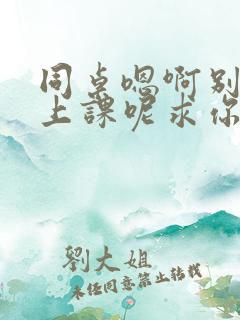 同桌嗯啊别
上課呢求你
劉大姐
未经同意禁止转载